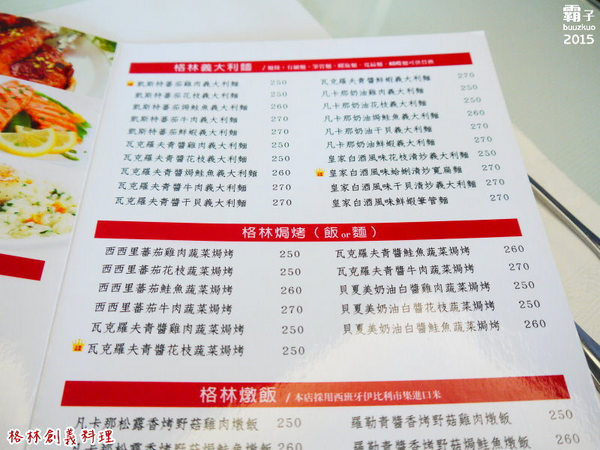 霸子
buuzkuo
2015
格林義大利麵
凱斯特蕃茄雞肉義大利麵 250
凱斯特蕃茄花枝義大利麵 250
凱斯特蕃茄焗鮭魚義大利麵 260
凱斯特蕃茄牛肉義大利麵 270
凱斯特蕃茄鮮蝦義大利麵 270
瓦克羅夫青醬雞肉義大利麵 250
瓦克羅夫青醬花枝義大利麵 250
瓦克羅夫青醬焗鮭魚義大利麵 260
瓦克羅夫青醬牛肉義大利麵 270
瓦克羅夫青醬干貝義大利麵 270
瓦克羅夫青醬鮮蝦義大利麵 270
凡卡那奶油雞肉義大利麵 250
凡卡那奶油花枝義大利麵 250
凡卡那奶油焗鮭魚義大利麵 260
凡卡那奶油干貝義大利麵 270
凡卡那奶油鮮蝦義大利麵 270
皇家白酒風味花枝清炒義大利麵 250
皇家白酒風味蛤蜊清炒寬扁麵 250
皇家白酒風味干貝清炒義大利麵 270
皇家白酒風味鮮蝦筆管麵 270
格林焗烤（飯or麵）
西西里蕃茄雞肉蔬菜焗烤 250
西西里蕃茄花枝蔬菜焗烤 250
西西里蕃茄鮭魚蔬菜焗烤 260
西西里蕃茄牛肉蔬菜焗烤 270
瓦克羅夫青醬雞肉蔬菜焗烤 250
瓦克羅夫青醬花枝蔬菜焗烤 250
瓦克羅夫青醬鮭魚蔬菜焗烤 260
瓦克羅夫青醬牛肉蔬菜焗烤 270
貝夏美奶油白醬雞肉蔬菜焗烤 250
貝夏美奶油白醬花枝蔬菜焗烤 250
貝夏美奶油白醬鮭魚蔬菜焗烤 260
格林燉飯 / 本店採用西班牙伊比利市集進口米
凡卡那松露香烤野菇雞肉燉飯 250
凡卡那松露香烤野菇焗鮭魚燉飯 260
羅勒青醬香烤野菇雞肉燉飯 250
羅勒青醬香烤野菇焗鮭魚燉飯 260
格林創義料理